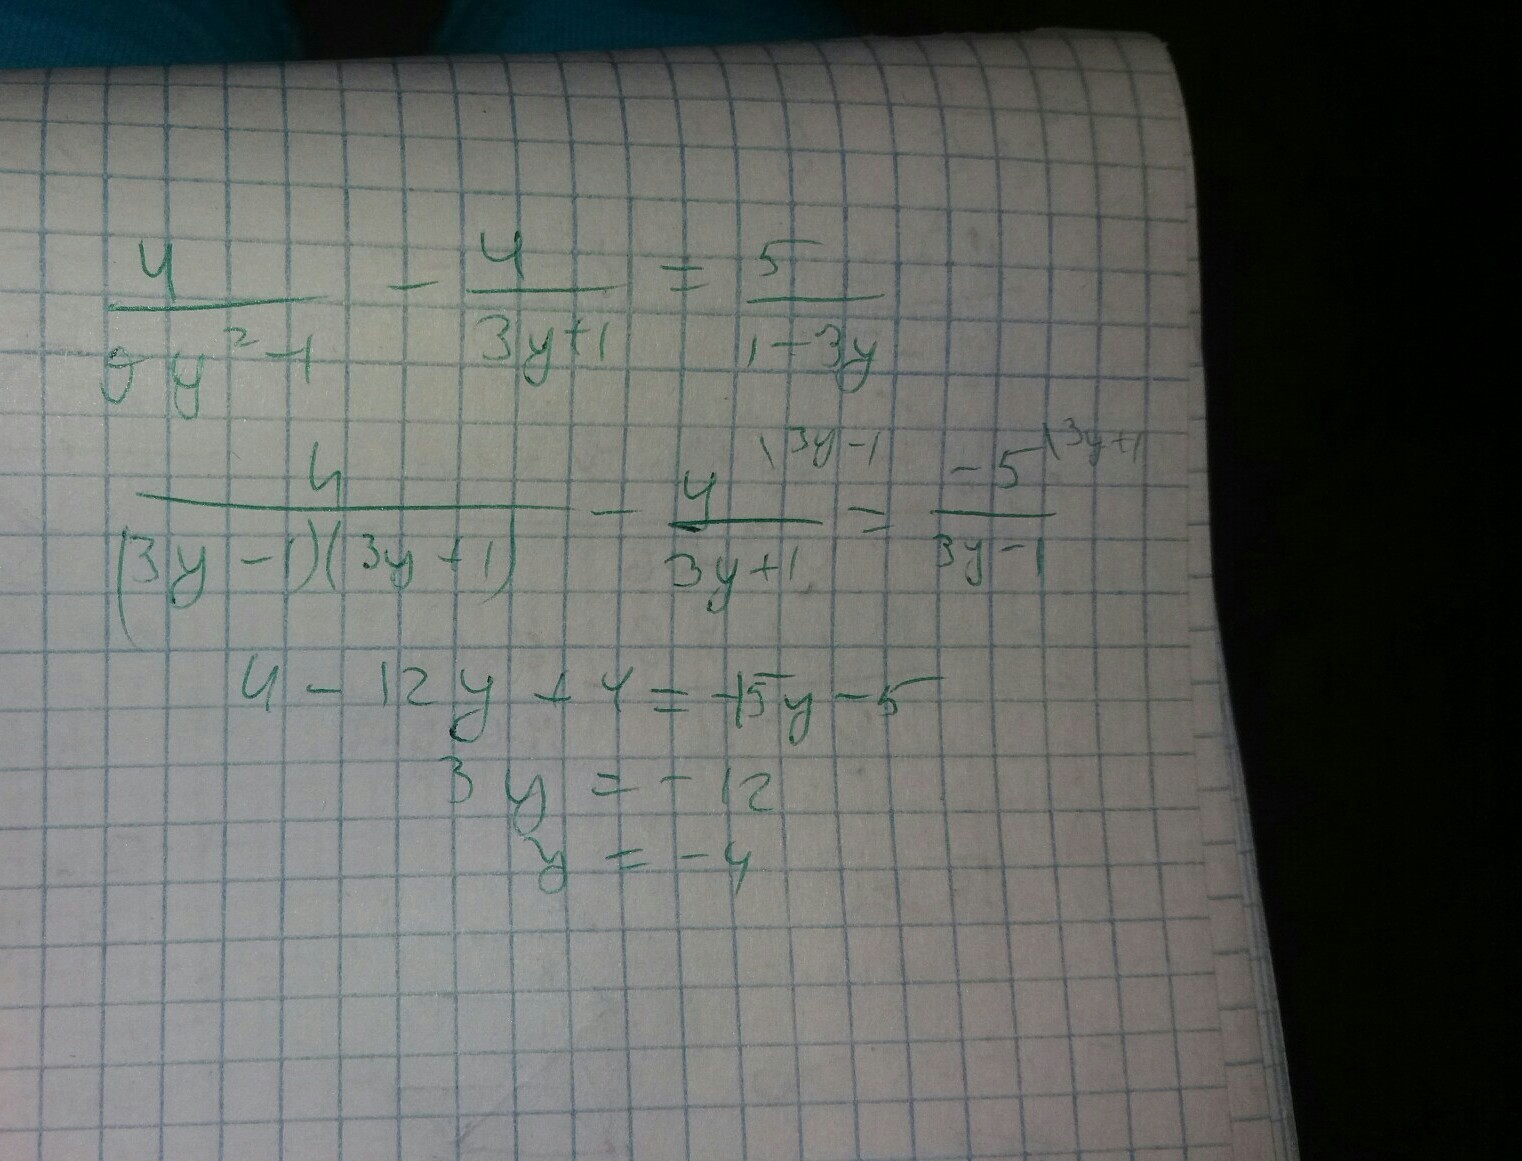 4/(9y²-1) - 4/(3y+1) = 5/(1-3y)
4/((3y-1)(3y+1)) - 4\3y-1/(3y+1) = -5\3y+1/(3y-1)
4 - 12y + 4 = -15y - 5
3y = -12
y = -4